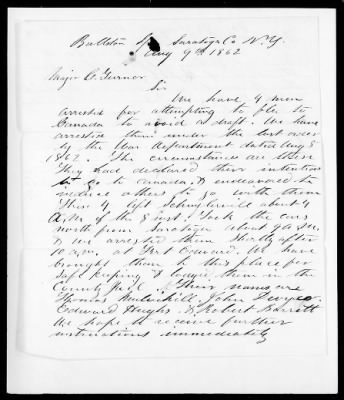 Ballston Spa Saratoga Co N.Y.
Aug 9th 1862
Major
Sir
We have 4 men
arrested for attempting to flee to
Canada to avoid a draft. We have
arrested them under the last order
by the War department dated Aug 8
1862. The circumstances are these
They had declared their intention
to go to Canada & endeavored to
induce others to go with them
These 4 left Schuylerville about 4
A.M. of the 8 inst. Took the cars
north from Saratoga about 9 A.M.
& we arrested them shortly after
10 a.m. at Fort Edward. We have
brought them to this place for
safe keeping & lodged them in the
County Jail. Their names are
Thomas John Dwyer
Edward Hughs & Robert Barrett
We hope to receive further
instructions immediately